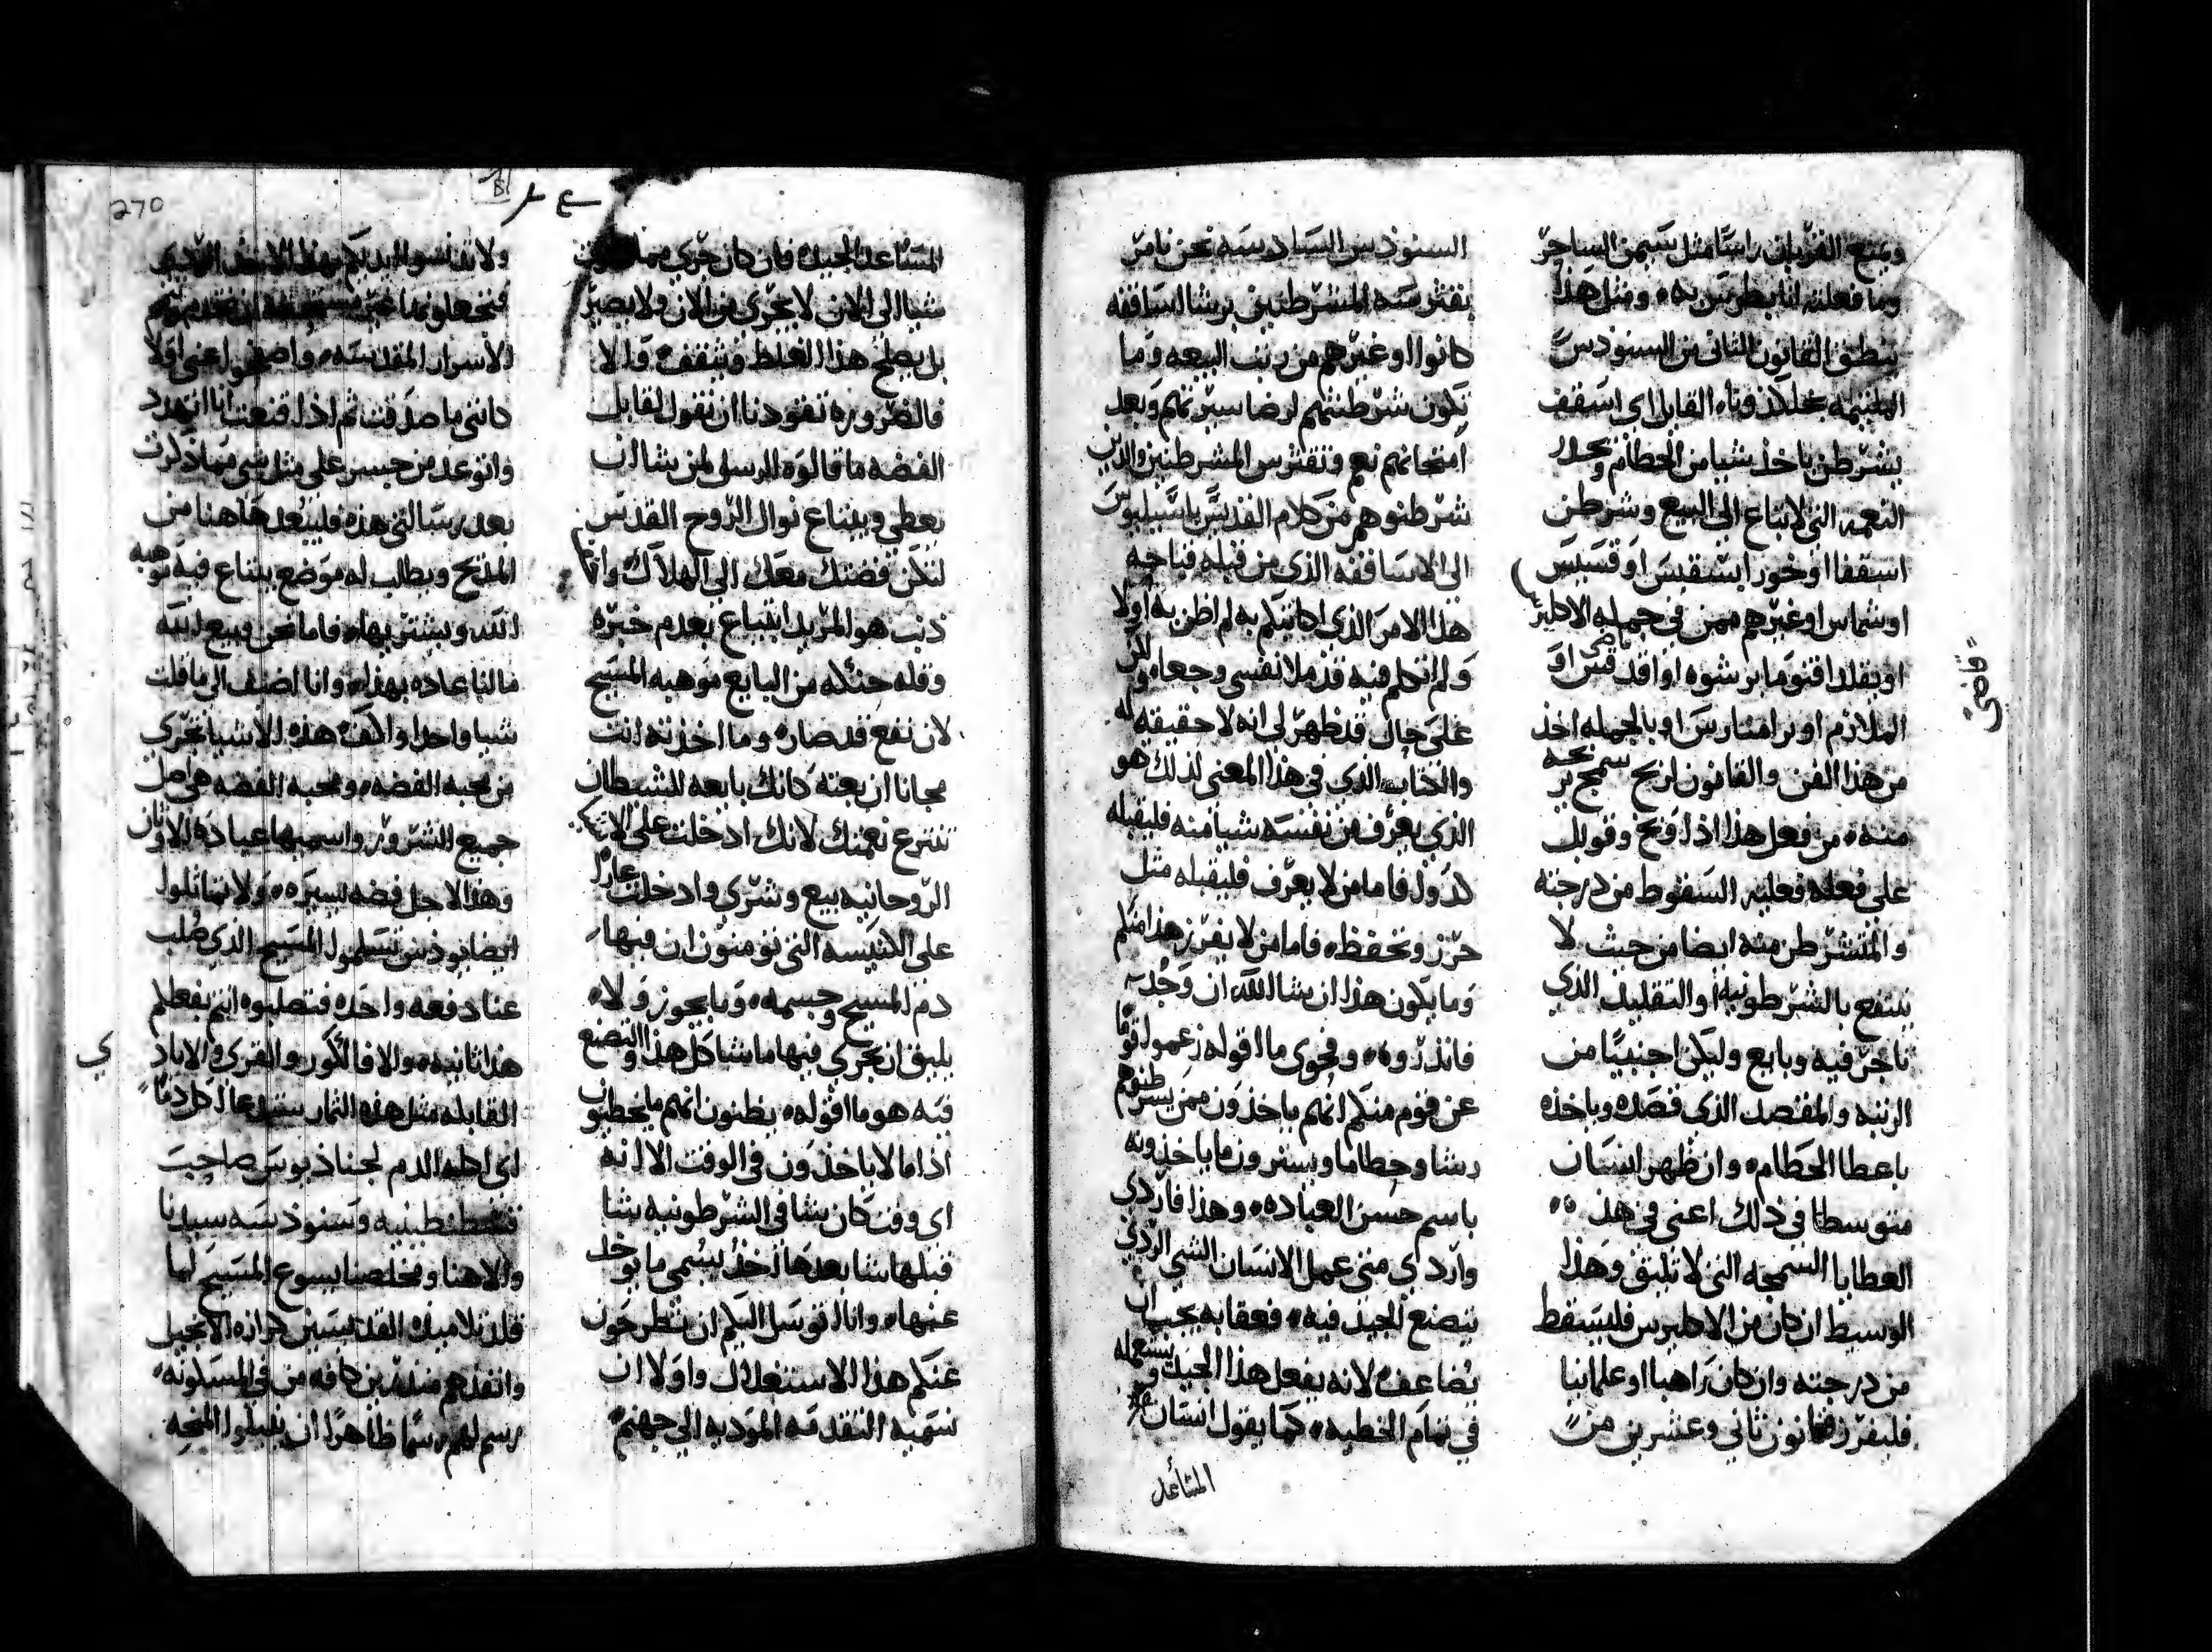 ويمنع القربان راسا مثل سيمن الساحر
وما فعلته انا بطرس به ومثل هذا
ينطق القانون الثاني من السنودس
الملتيمه بخلكدونا القايل اي اسقف
يشرطن ياخذ شيا من الحطام ويحدر
النعمه التي لا تباع الي البيع وشرطن
اسقفا او خورابسقبس او قسيس
او شماس او غيرهم ممن في جمله الاكليرس
او يقلد اقنوما برشوه او اقدقس او
الملازم او برامنارس او بالجمله اخذ
من هذا الفن والقانون لربح سمج
منه من فعل هذا اذا وبخ وقوبل
على فعله فعليه السقوط من درجته
والمتشرطن منه ايضا من حيث لا
ينتفع بالشرطونيه او التقليد الذي
تاجر فيه وبايع وليكن اجنبيا من
الرتبه والمقتصد الذي قصده وياخذه
باعطا الحطام وان ظهر انسان
متوسطا في ذلك اعني في هذه
العطايا السمجه التي لا تليق وهذا
الوسيط ان كان من الاكليرس فليسقط
من درجته وان كان راهبا او علمانيا
فليفرز قانون ثاني وعشرين من
قاضي
السنودس السادسه نحن نامر
بقترسة المشرطنين برشا اساقفه
كانوا او غيرهم من رتب البيعه وما
تكون شرطنتهم لرضا سيرتهم وبعد
امتحانهم نعم وتقترس المشرطنين والدين
شرطنوهم من كلام القديس باسيليوس
الى الاساقفه الذي من قبله فباحه
هذا الامر الذي اكاتبكم به لم اظن به اولا
ولم اتكلم فيه قد ملا نفسي وجعا ولكن
على حال قد ظهر لي انه لا حقيقه له
والكتاب الذي في هذا المعنى لذلك هو
الذي يعرف من نفسه شيا منه فليقبله
كدوا فاما من لا يعرف فليقبله مثل
حرز وتحفظ فاما من لا يفرز هذا منكم
وما يكون هذا ان شا الله ان وجد
فانذروه وفحوى ما اقوله زعموا قوما
عن قوم منكم انهم ياخذون ممن يشرطنوهم
رشا وحطاما ويسترون ما ياخذونه
باسم حسن العباده وهذا فاردى
واردي متى عمل الانسان الشي الردي
يتصنع الجيد فيه فعقابه يجب ان
يضاعف لانه يفعل هذا الجيد ويستعمله
في تمام الخطيه كما يقول انسان
المساعد
المساعد الجيد فان كان جري مما
شيا الى الان لا يجري من الان ولا يصير
بل يصلح هذا الغلط ويثقف والا
فالضروره تقودنا ان نقول لقابل
الفضه ما قالوه الرسل لمن يشا ان
يعطي ويبتاع نوال الروح القدس
لتكن فضتك معك الى الهلاك
ذنب هو المريد ابتياع بعدم خبره
وقله حنكه من البايع موهبه المسيح
لان نفع قد صاره وما اخذته انت
مجانا ان بعته كانك بايعه للشيطان
تنتزع نعمتك لانك ادخلت على
الروحانيه بيع وشري وادخلت عارا
على الكنيسه التي نومنون ان فيها
دم المسيح وجسمه وما يجوز ولا
يليق ان يجري فيها ما شا كل هذا والتصنع
فيه هو ما اقوله يظنون انهم ما يخطيون
اذا ما الا ياخذون في الوقت الا انه
اي وقت كان شا في الشرطونيه شا
قبلها شا بعدها اخذ يسمى ما يوخذ
عنها وانا اتوسل اليكم ان تطرحون
عنكم هذا الاستغلال واولا ان
نسميه التقدمه الموديه الي جهنم
270
ولا تدنسوا ايديكم بهذا الاخذ
فتجعلونها غير مستحقه ان تخدم بهم
الاسرار المقدسه واصفحوا عني اولا
كانني ما صدقت ثم اذ اقتنعت انا اتهدد
واتوعد من جسر على مثل شي مما ذكرت
بعد رسالتي هذه فليبعد هاهنا من
المذبح ويطلب له موضع يبتاع فيه موهبه
الله ويشتريها فاما نحن وبيع الله
ما لنا عاده بهذا وانا اضيف الى ما قلت
شيا واحدا واكف هذه الاشيا تجري
من محبه الفضه ومحبه الفضه هي اصل
جميع الشرور واسميها عبادة الاوثان
وهذا لاجل فضه يسيره ولا تماثلوا
ايضا يوذس تسلموا المسيح الذي صلب
عنا دفعه واحده فتصلبوه انتم بفعلكم
هذا ثانيه والا فالكور والقرى والاياد
القابله مثل هذه الثمار ستدعا اكل دما
اي اكله الدم لجناذيوس صاحب
قسطنطينيه وسنوذسه سيدنا
والاهنا ومخلصنا يسوع المسيح لما
قلد تلاميذه القديسين كرازه الانجيل
وانفذهم منذرين كافه من في المسكونه
رسم لهم رسما ظاهرا ان يقبلوا المنحه